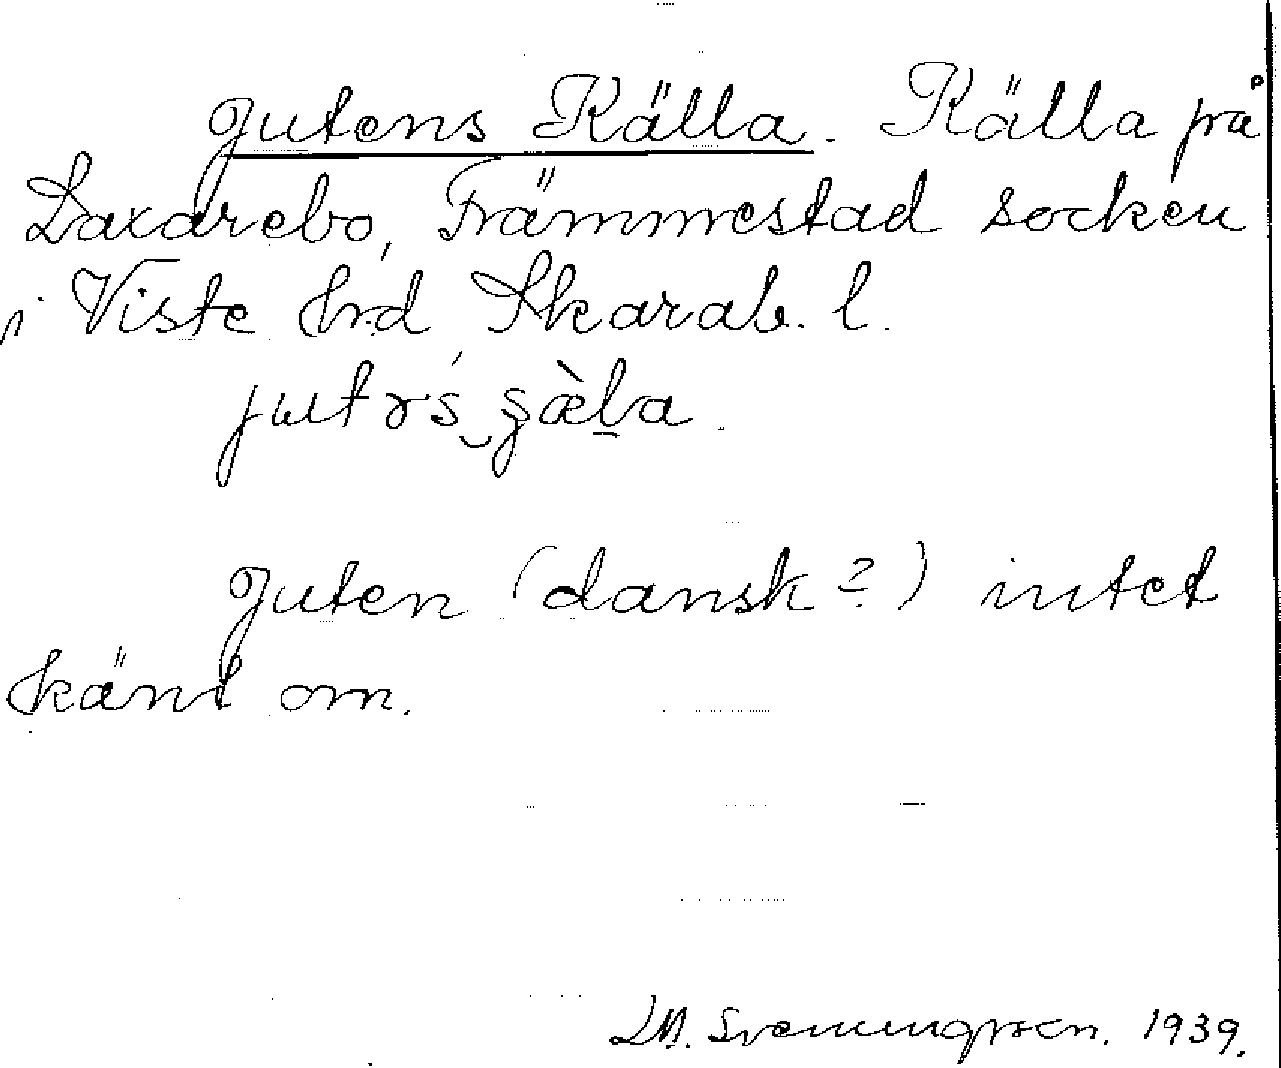 Jutens Källa. Källa på
Laxarebo, Främmestad socken
i Viste hrd Skarab. l.
Juten (dansk?) intet
känt om.
L.M. Svenungsson. 1939.